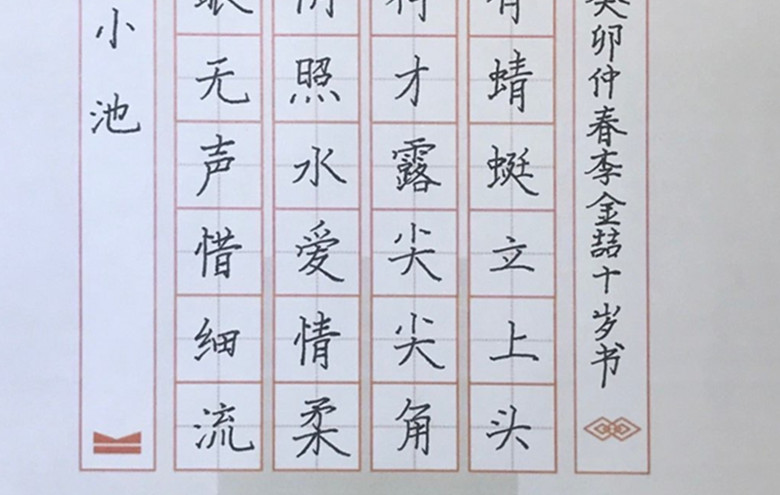 小池
无声惜细流
照水爱情柔
才露尖尖角
有蜻蜓立上头
卯仲春李金喆十岁书